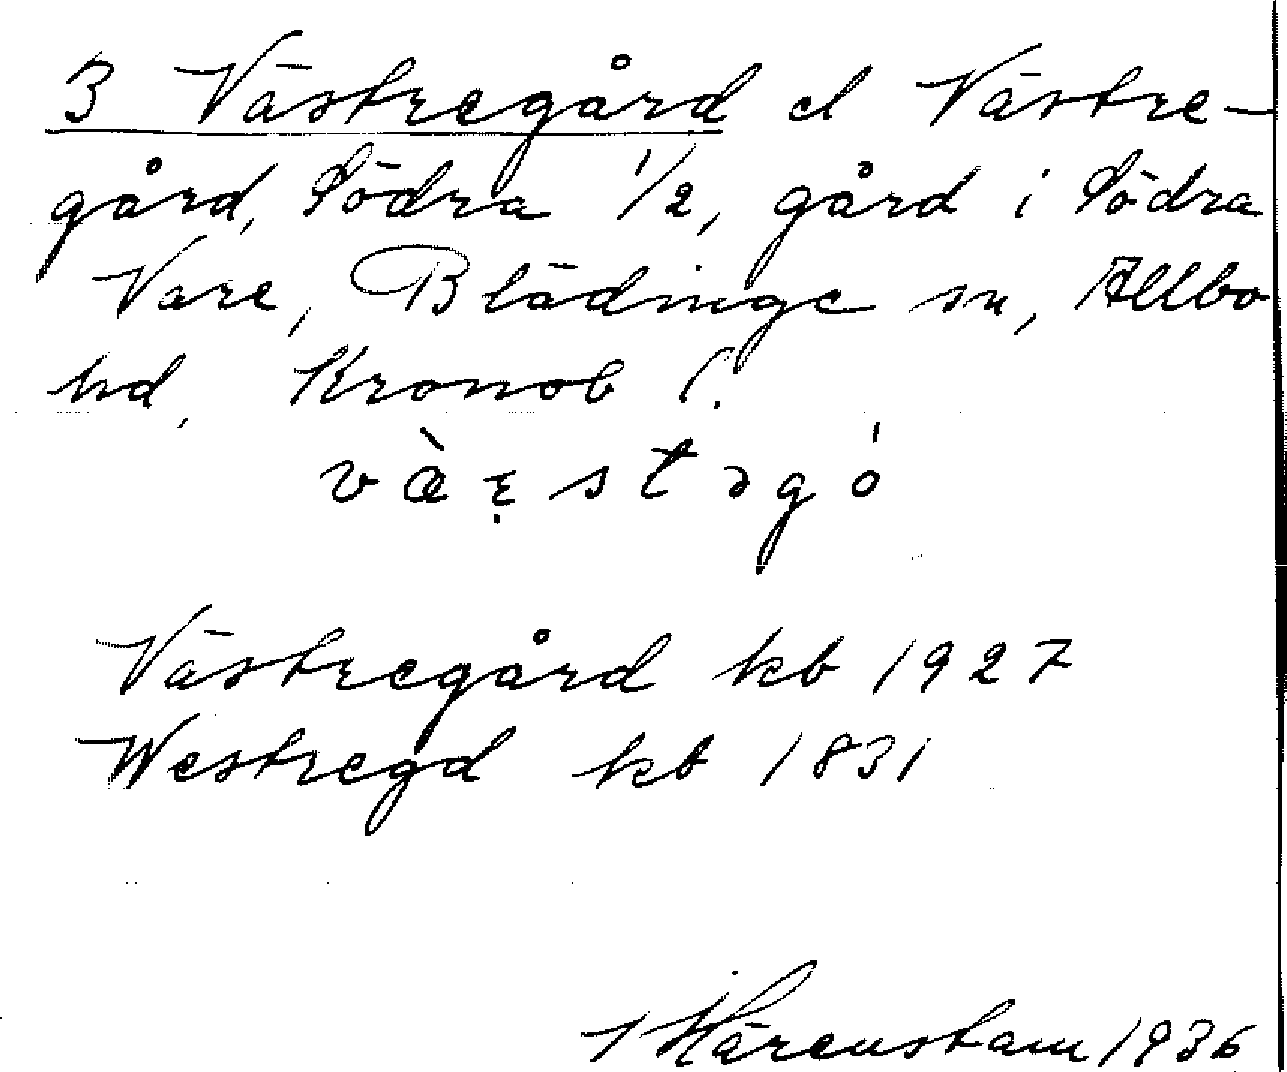 3 Västregård el Västre-
gård, Södra 1/2, gård i Södra
Vare, Blädinge sn, Allbo
hd, Kronob l.
væ̀ɛ̣stəgó
Västregård kb 1927
Westregd kb 1831
Härenstam 1936